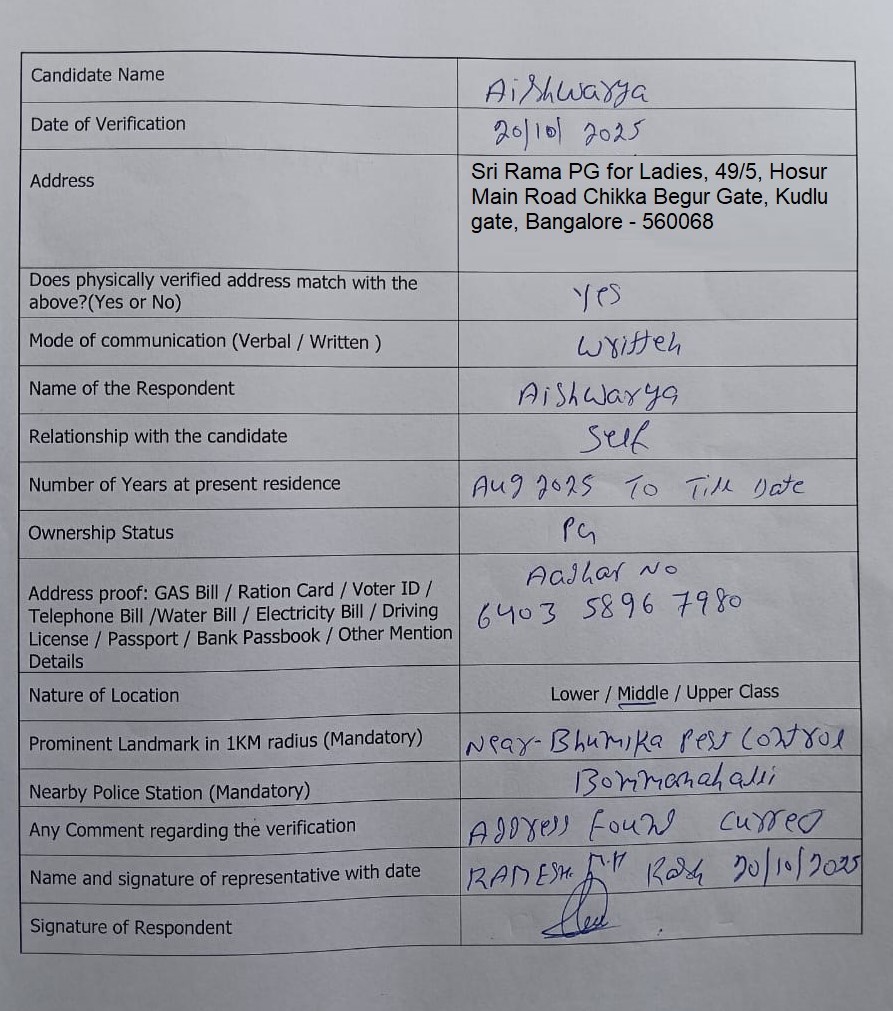 Candidate Name
Aishwarya
Date of Verification
20/10/ 2025
Address
Sri Rama PG for Ladies, 49/5, Hosur
Main Road Chikka Begur Gate, Kudlu
gate, Bangalore - 560068
Does physically verified address match with the
above?(Yes or No)
Yes
Mode of communication (Verbal / Written )
Written
Name of the Respondent
Aishwarya
Relationship with the candidate
Self
Number of Years at present residence
Aug 2025 To Till Date
Ownership Status
PG
Address proof: GAS Bill / Ration Card / Voter ID /
Telephone Bill /Water Bill / Electricity Bill / Driving
License / Passport / Bank Passbook / Other Mention
Details
Aadhar No
6403 5896 7980
Nature of Location
Lower / Middle / Upper Class
Prominent Landmark in 1KM radius (Mandatory)
Near- Bhumika Pest Control
Nearby Police Station (Mandatory)
Bommanahalli
Any Comment regarding the verification
Address Found
Name and signature of representative with date
RAMESH. 20/10/2025
Signature of Respondent